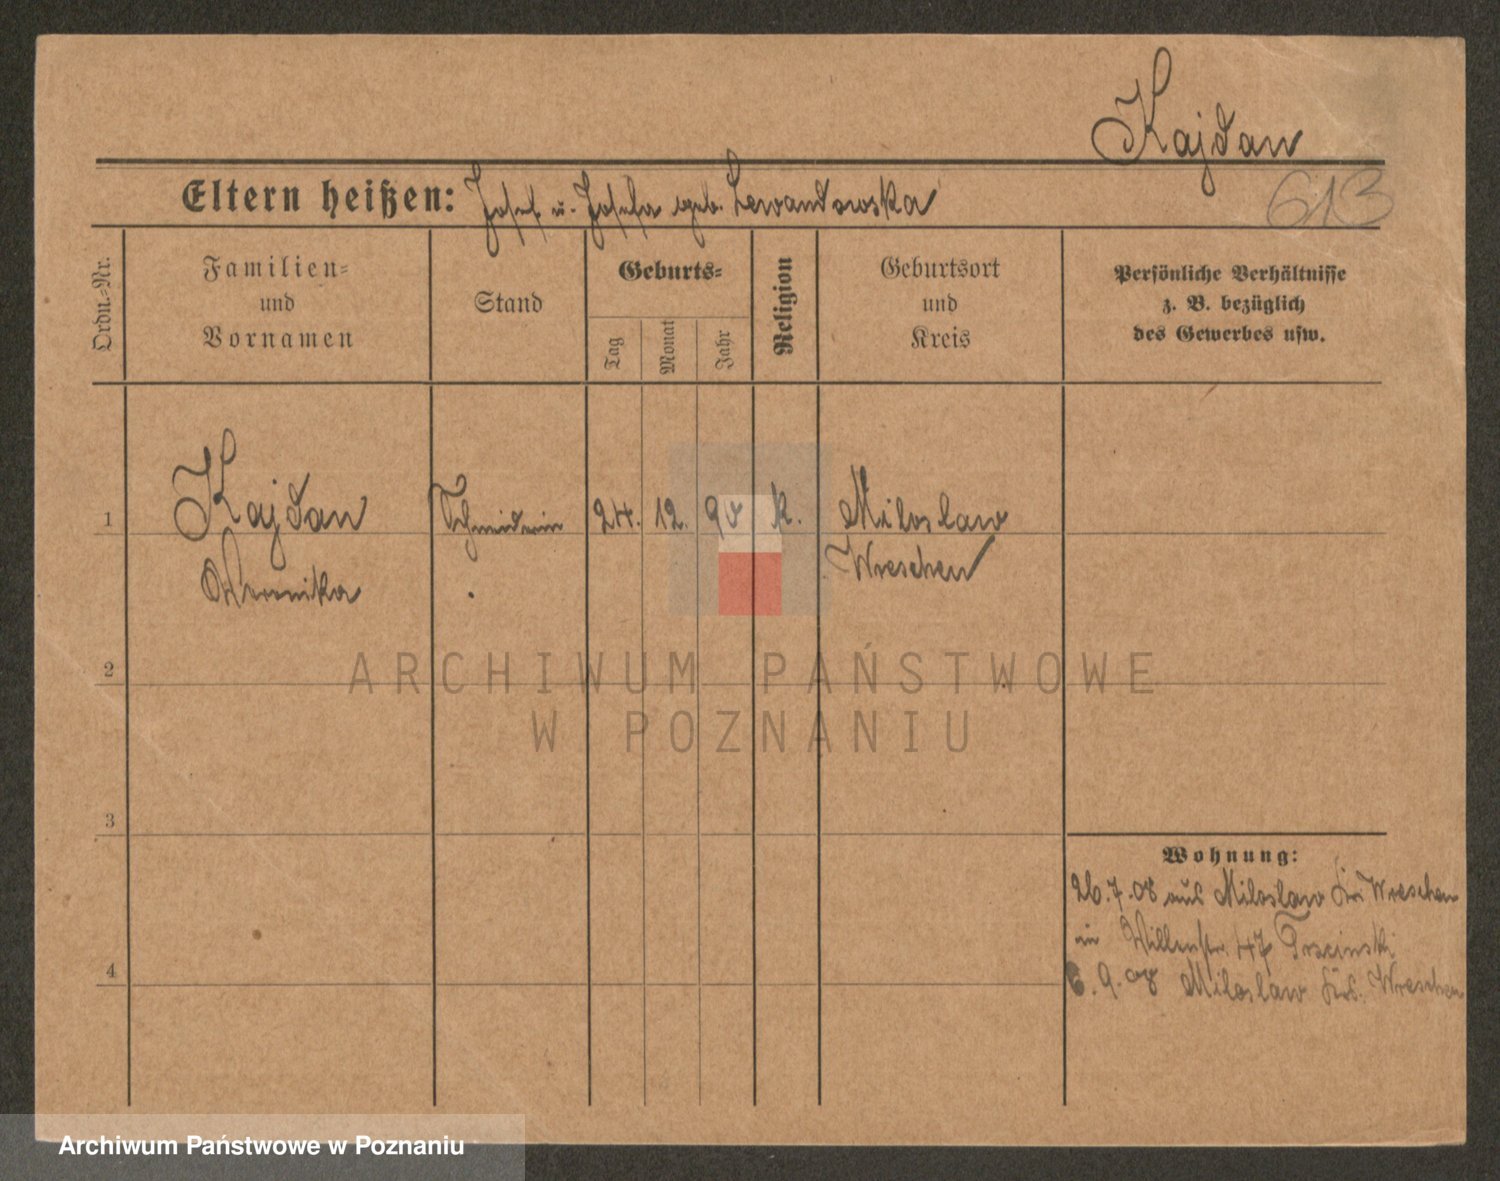 Kajdan
613
Eltern heißen: Josef u. Josefa geb. Lewandowska
Ordn.-Nr.
Familien-
und
Vornamen
Stand
Geburts-
Tag
Monat
Jahr
Religion
Geburtsort
und
Kreis
Persönliche Verhältnisse
z. B. bezüglich
des Gewerbes usw.
1 Kajdan Schneiderin 24. 12. 90 k. Miloslaw
Weronika Wreschen
2
3
4
Wohnung:
26.7.08 aus Miloslaw Krs Wreschen
in 47
6.9.08 Miloslaw Krs. Wreschen
ARCHIWUM PAŃSTWOWE
W POZNANIU
Archiwum Państwowe w Poznaniu